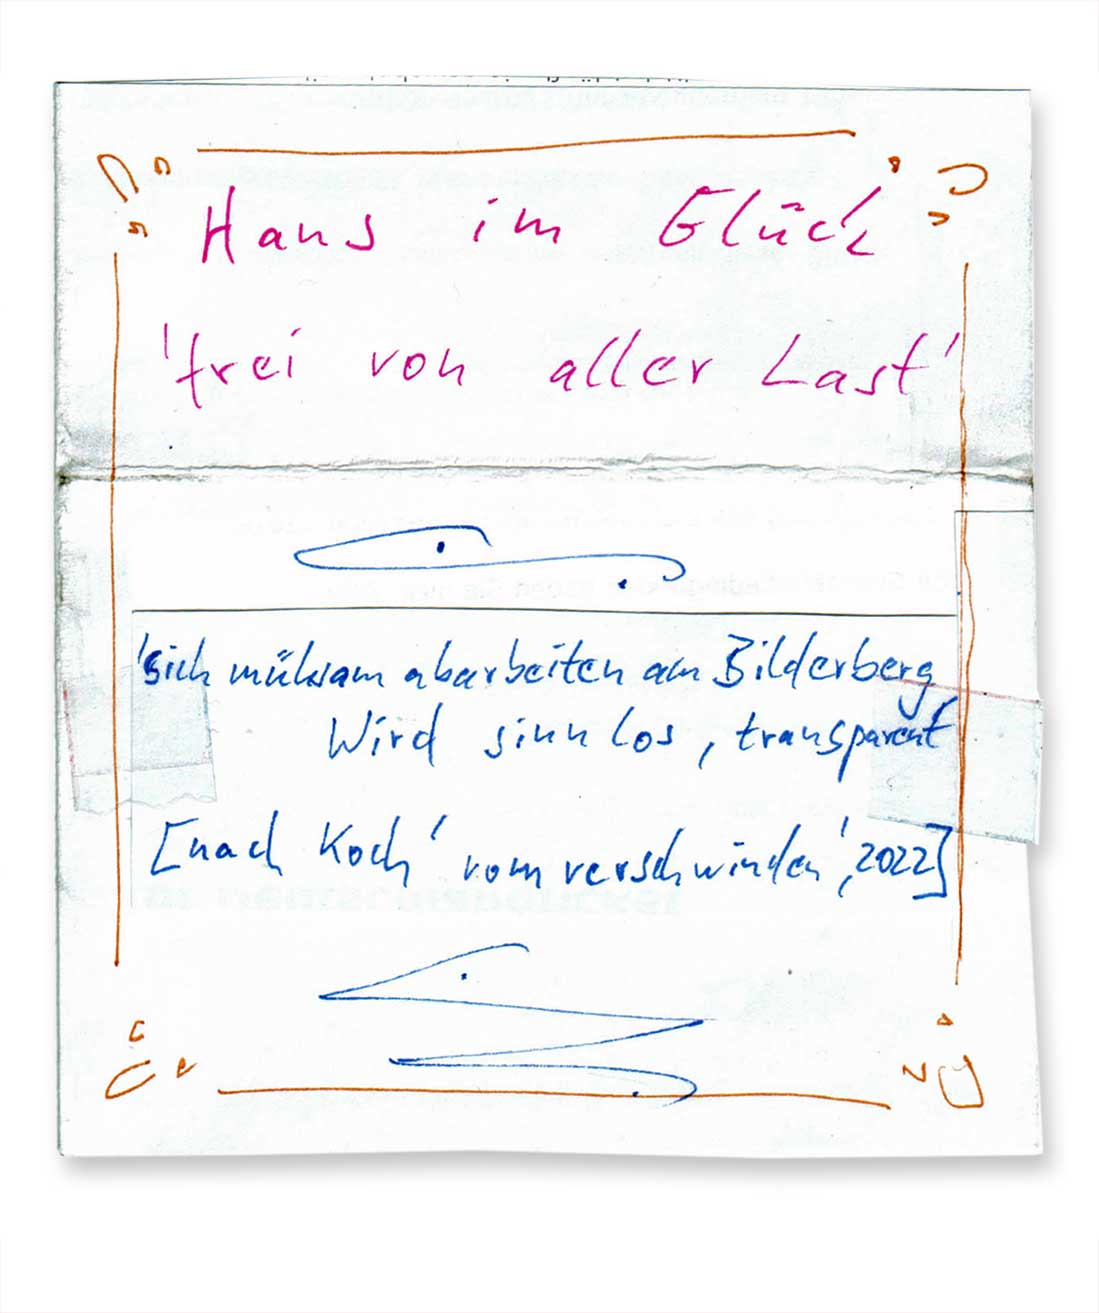 Hans im Glück
'frei von aller Last'
'sich mühsam abarbeiten am Bilderberg
Wird sinnlos, transparent
[nach Koch 'vom verschwinden', 2022]